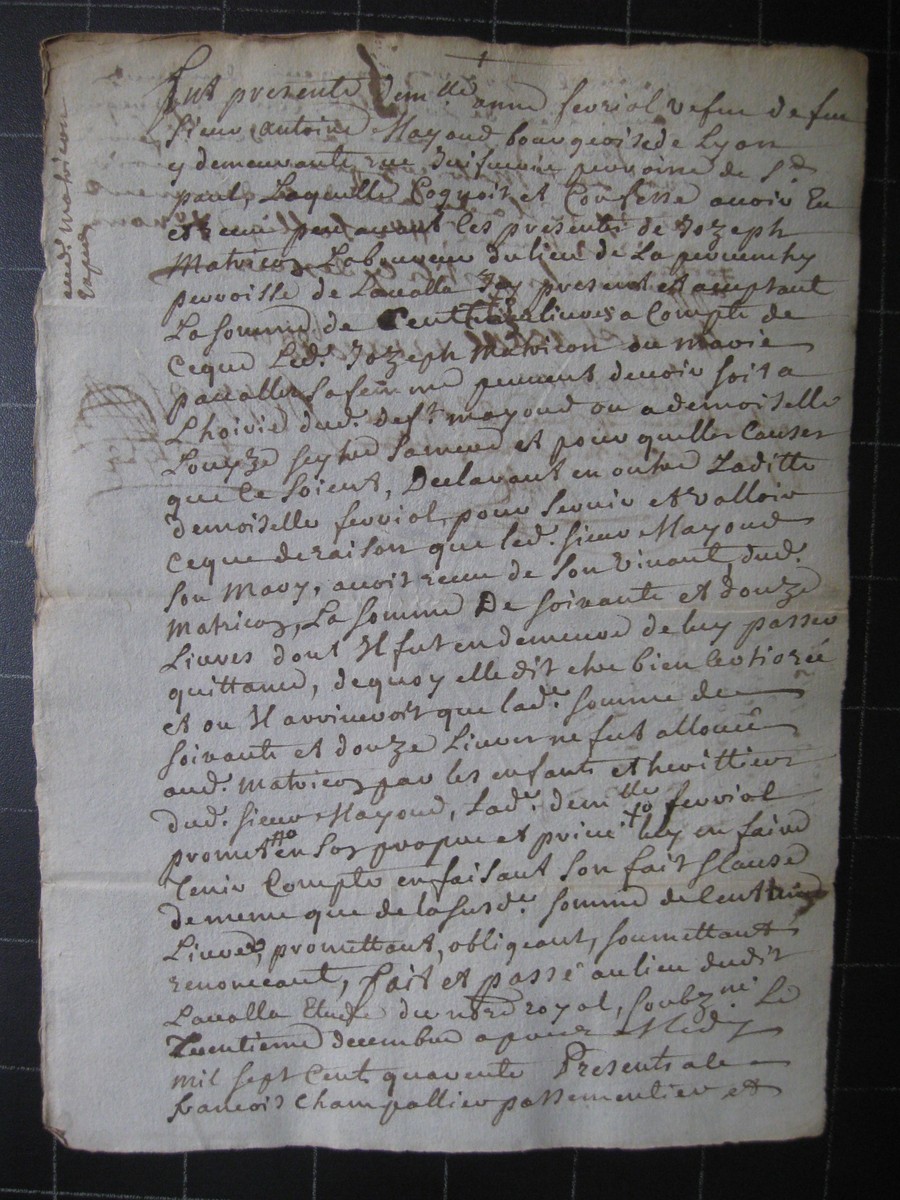 Fut presente Dem.lle anne ferriol vefue de feu
Sieur antoine Mayoud bourgeois de Lyon
y demeurante rue Juifuerie perroisse de S.t
paul, Laquelle Cognoit et Confesse auoir Eu
et receu par auant les presentes de Jozeph
Matricon Laboureur du lieu de La
perroisse de Laualla Icy present et acceptant
La somme de Cent livres a Compte de
Ceque Led. Jozeph Matricon ou marie
pauallier sa femme peuuent deuoir soit a
Lhoirie dud. deft. mayoud ou a demoiselle
Louyze seytre sa mere et pour quelles Causes
que Ce soient, Declarant en outre Laditte
demoiselle ferriol pour seruir et valloir
Ceque de raison que led. sieur Mayoud
son Mary, auoit receu de son viuant dud.
Matricon, La somme De soixante et douze
Liures dont Il fut en demeure de luy passer
quittance, dequoy elle dit etre bien
et ou Il arriueroit que lad. somme de
soixante et douze Liures ne fut allouée
aud. Matricon par les enfants et herittiers
dud. sieur Mayoud, Lad. dem.lle ferriol
promet en son propre et priué luy en faire
Tenir Compte en faisant son fait Clause
de meme que de la susd. somme de Cent
Liures, promettant, obligeant, soumettant
renonceant, fait et passé au lieu dudit
Laualla Etude du nore royal, soubzne. Le
decembre apres Midy
mil sept Cent quarente Presents a Ce
francois Champallier passementier et
Matricon